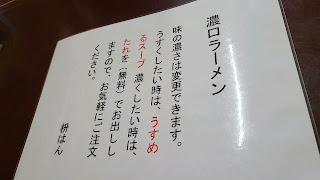 濃口ラーメン
味の濃さは変更できます。
うすくしたい時は、うすめ
るスープ 濃くしたい時は、
たれを(無料)でお出しし
ますので、お気軽にご注文
ください。
枡はん